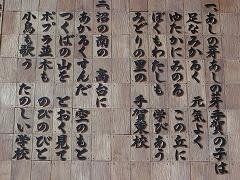 一、あしの芽あしの芽手賀の子は
足なみかるく 元気よく
ゆたかにみのる この丘に
ぼくもわたしも 学びあう
みどりの里の 手賀東校
二、沼の南の 高台に
あかるくすんだ 空のもと
つくばの山を とおく見て
ポプラ並木も のびのびと
小鳥も歌う たのしい学校